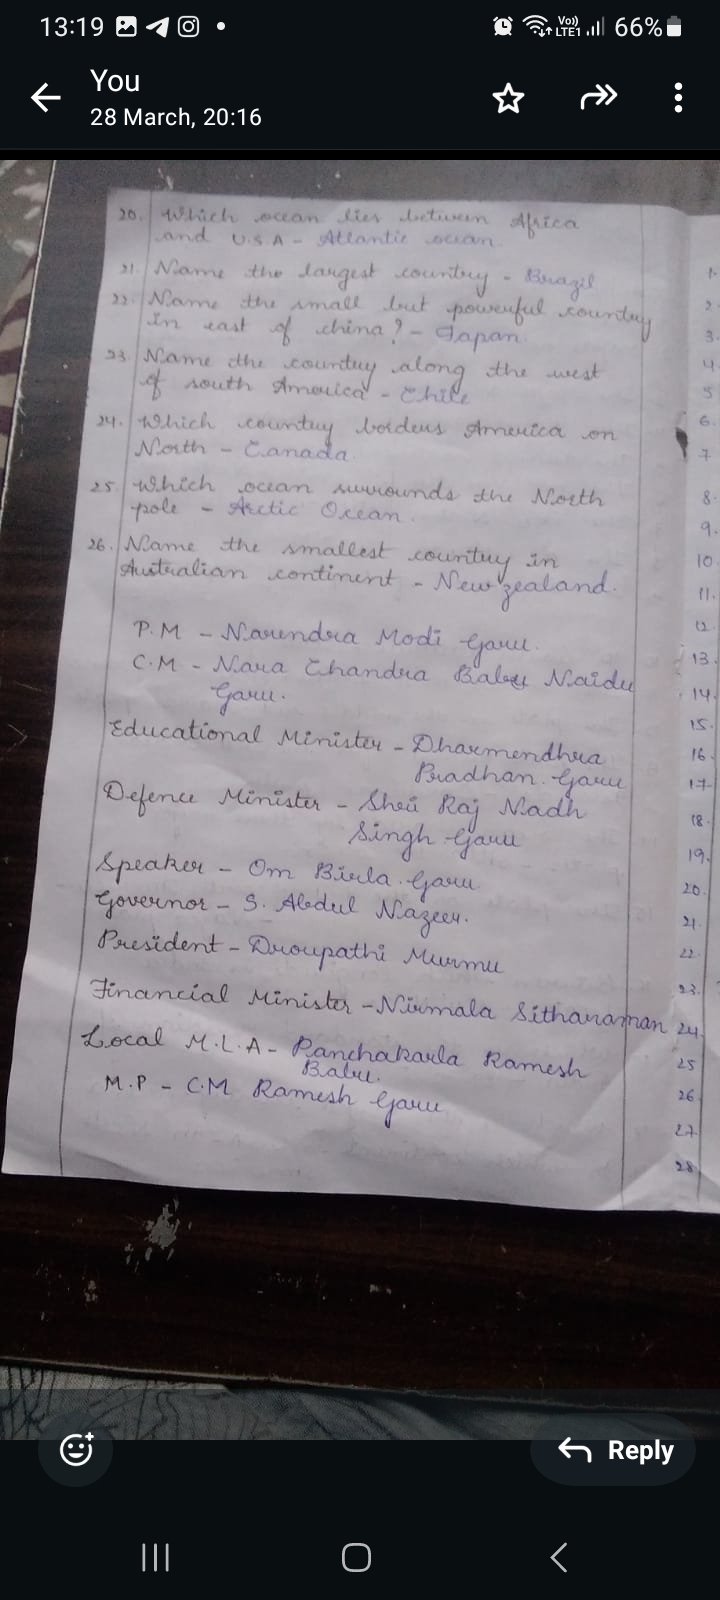 13:19
Vo)) LTE1 66%
You
28 March, 20:16
20. Which ocean lies between Africa
and U.S.A - Atlantic ocean.
21. Name the largest country - Brazil
22. Name the small but powerful country
in east of china? - Japan.
23. Name the country along the west
of south America - Chile
24. Which country borders America on
North - Canada.
25. Which ocean surrounds the North
pole - Arctic Ocean.
26. Name the smallest country in
Australian continent - New zealand.
P.M - Narendra Modi Garu.
C.M - Nara Chandra Babu Naidu
Garu.
Educational Minister - Dharmendhra
Pradhan. Garu
Defence Minister - Shri Raj Nadh
Singh Garu
Speaker - Om Birla. Garu
Governor - S. Abdul Nazeer.
President - Droupathi Murmu
Financial Minister - Nirmala Sitharaman
Local M.L.A - Panchakarla Ramesh
Babu.
M.P - C.M Ramesh Garu
1.
2.
3.
4.
5
6.
7
8.
9.
10.
11.
12.
13.
14.
15.
16.
17.
18.
19.
20.
21.
22.
23.
24.
25
26.
27
28
Reply